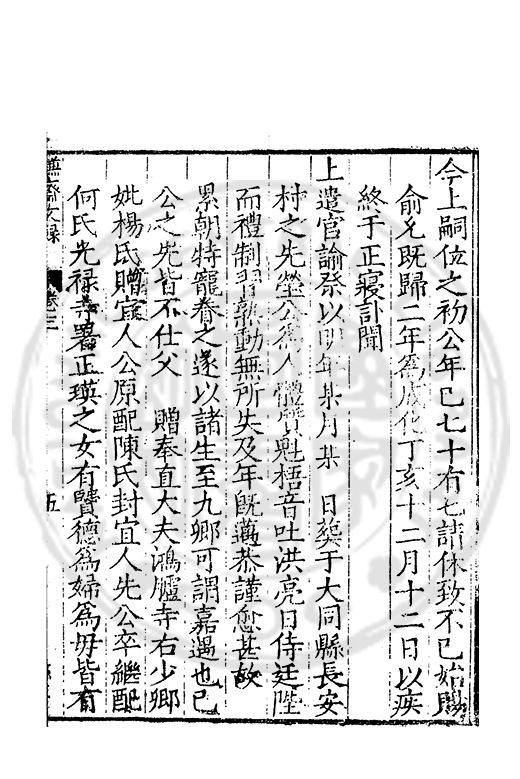 今上嗣位之初公年已七十有七請休致不已始賜
俞允既歸二年為成化丁亥十二月十二日以疾
終于正寢訃聞
上遣官諭祭以明年某月某 日葬于大同縣長安
村之先塋公為人體質魁梧音吐洪亮日侍廷陛
而禮制習熟動無所失及年既邁恭謹愈甚故
累朝特寵眷之遂以諸生至九卿可謂嘉遇也已
公之先皆不仕父 贈奉直大夫鴻臚寺右少卿
妣楊氏贈宜人公原配陳氏封宜人先公卒繼配
何氏光祿寺署正瑛之女有賢德為婦為母皆有
文錄 卷三 五